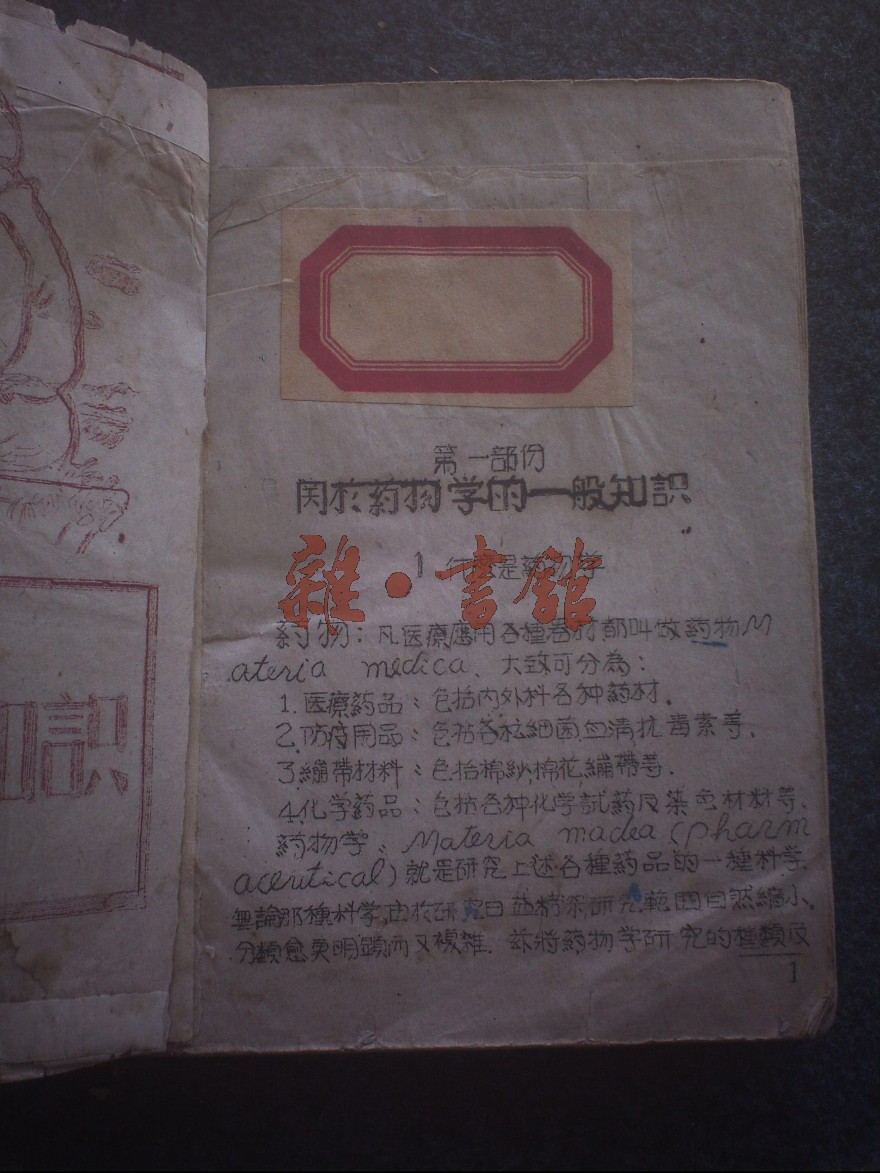 第一部份
関於葯物学的一般知識
1 什麽是葯物学
雜·書館
葯物：凡医療應用各種器材都叫做葯物M
ateria medica、大致可分為：
1.医療葯品：包括内外科各种葯材.
2.防疫用品：包括各种細菌血清抗毒素等.
3.繃帶材料：包括棉紗,棉花,繃帶等.
4.化学葯品：包括各种化学試葯及染色材料等.
葯物学：Materia madea (pharm
aceutical) 就是研究上述各種葯品的一種科学.
無論那種科学,由於研究日益精深,研究範囲自然縮小.
分類愈更明顕而又複雜. 茲將葯物学研究的種類及
1
知識